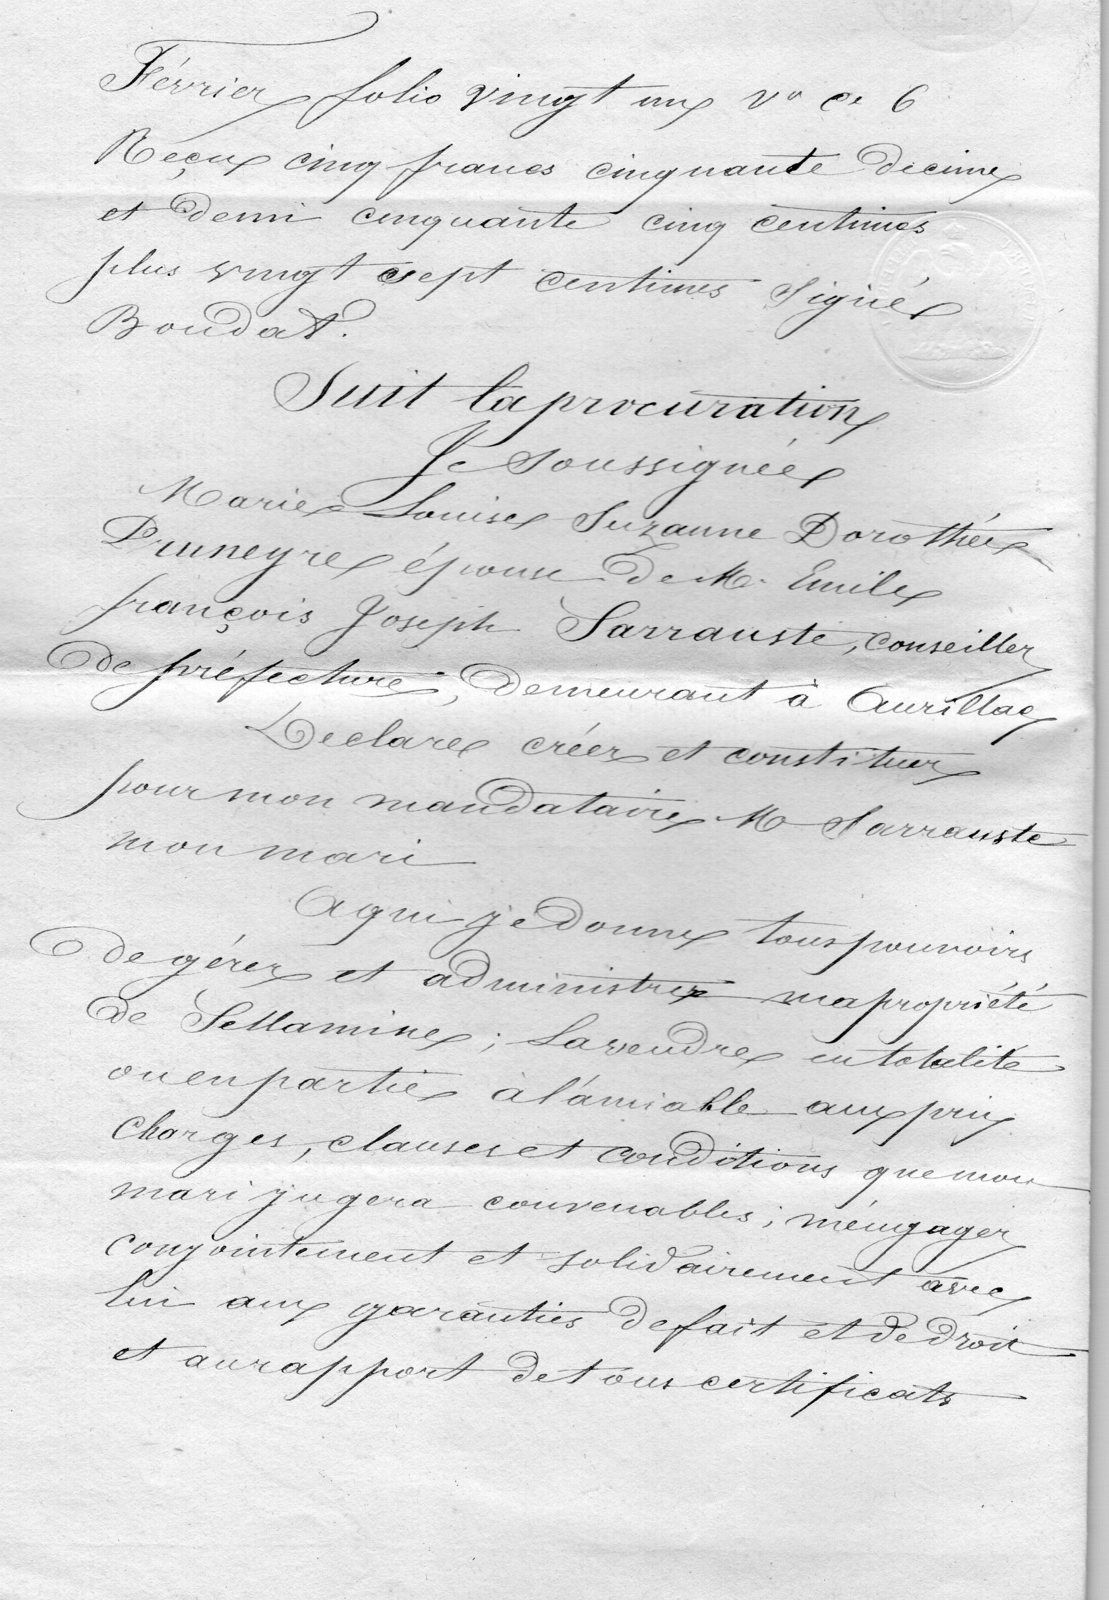 Février folio vingt un v° c. 6
Reçu cinq francs cinquante decime
et demi cinquante cinq centimes
plus vingt sept centimes signé
Boudat.
Suit la procuration
Je soussignée
Marie Louise Suzanne Dorothée
Pruneyre épouse de M. Emile
françois Joseph Sarrauste, conseiller
de préfecture, demeurant à Aurillac
Declare créer et constituer
pour mon mandataire M Sarrauste
mon mari
A qui je donne tous pouvoirs
de gérer et administrer ma propriété
de Sellamine; La vendre en totalité
ou en partie à l'amiable aux prix
charges, clauses et conditions que mon
mari jugera convenables; m'engager
conjointement et solidairement avec
lui aux garanties de fait et de droit
et au rapport de tous certificats